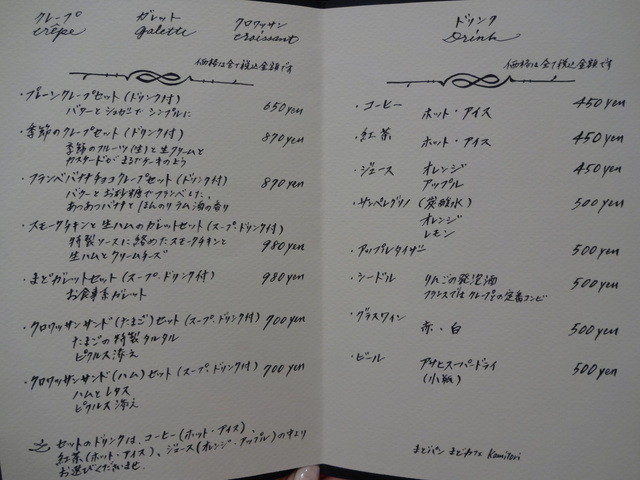 クレープ ガレット クロワッサン
crêpe galette croissant
価格は全て税込金額です
・プレーンクレープセット(ドリンク付) 650yen
バターとシュガーでシンプルに
・季節のクレープセット(ドリンク付) 870yen
季節のフルーツ(生)と生クリームと
カスタードがまるでケーキのよう
・フランベバナナチョコクレープセット(ドリンク付) 890yen
バターとお砂糖でフランベした、
あつあつバナナとほんのりラム酒の香り
・スモークチキンと生ハムのガレットセット(スープ・ドリンク付)
特製ソースに絡めたスモークチキンと 980yen
生ハムとクリームチーズ
・まどガレットセット(スープ・ドリンク付) 980yen
お食事系ガレット
・クロワッサンサンド(たまご)セット(スープ・ドリンク付) 700yen
たまごの特製タルタル
ピクルス添え
・クロワッサンサンド(ハム)セット(スープ・ドリンク付) 700yen
ハムとレタス
ピクルス添え
セットのドリンクは、コーヒー(ホット・アイス)・
紅茶(ホット・アイス)、ジュース(オレンジ・アップル)の中より
お選びくださいませ。
ドリンク
Drink
価格は全て税込金額です
・コーヒー ホット・アイス 450yen
・紅茶 ホット・アイス 450yen
・ジュース オレンジ 450yen
アップル
・サンペレグリノ(炭酸水) 500yen
オレンジ
レモン
・アップルタイザー 500yen
・シードル りんごの発泡酒 500yen
フランスではクレープとの定番コンビ
・グラスワイン
赤・白 500yen
・ビール アサヒスーパードライ 500yen
(小瓶)
まどパン まどカフェ Kamitori